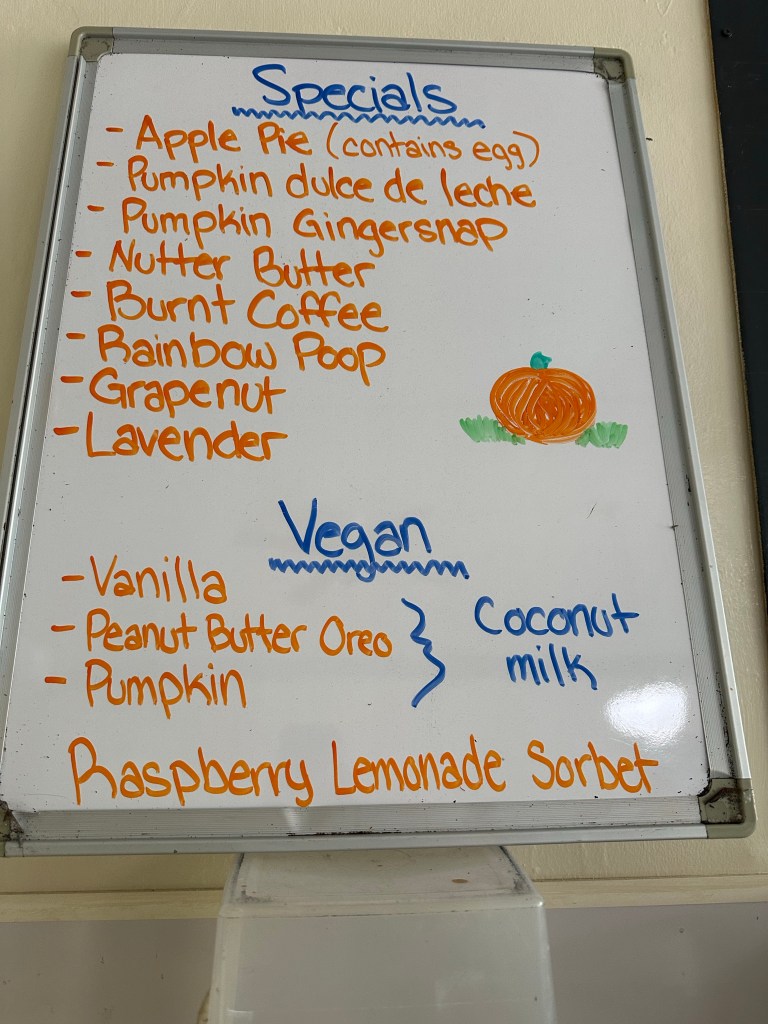 Specials
- Apple Pie (contains egg)
- Pumpkin dulce de leche
- Pumpkin Gingersnap
- Nutter Butter
- Burnt Coffee
- Rainbow Poop
- Grapenut
- Lavender
Vegan
- Vanilla
- Peanut Butter Oreo
- Pumpkin
Coconut
milk
Raspberry Lemonade Sorbet